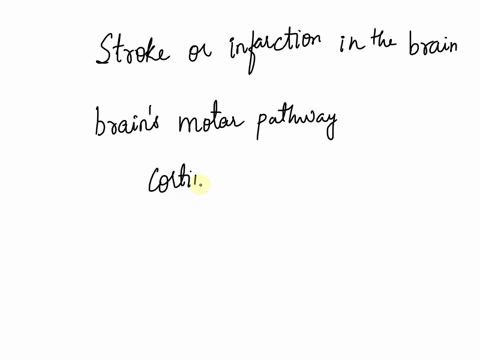 Stroke or infarction in the brain
brain's motor pathway